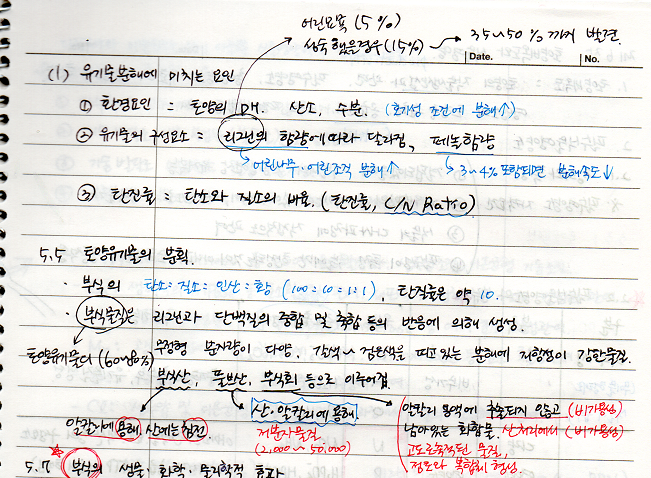 어린묘목 (5%)
성숙했을경우 (15%) → 35~50%까지 발견
Date. No.
(1) 유기물분해에 미치는 요인
① 환경요인 = 토양의 pH, 산소, 수분, (호기성 조건에 분해↑)
② 유기물의 구성요소 = 리그닌의 함량에따라 달라짐, 페놀함량
어린나무·어린조직 분해↑ 3~4% 포함되면 분해속도↓
③ 탄질률 = 탄소와 질소의 비율, (탄질률, C/N Ratio)
5.5 토양유기물의 분획.
· 부식의 탄소=질소=인산=황 (100=10=1=1), 탄질률은 약 10.
· 부식물질은 리그닌과 단백질의 중합 및 축합 등의 반응에 의해 생성.
토양유기물의 (60~80%) 무정형 분자량이 다양, 갈색~검은색을 띠고있는 분해에 저항성이 강한물질.
부식산, 풀브산, 부식회 등으로 이루어짐.
알칼리에 용해 산에는 침전.
산·알칼리에 용해
저분자물질
(2,000~50,000)
알칼리 용액에 추출되지 않고 (비가용성)
남아있는 화합물. 산처리에서 (비가용성)
고도로축적된 물질,
점토와 복합체 형성.
5.7 부식의 생물·화학·물리학적 효과